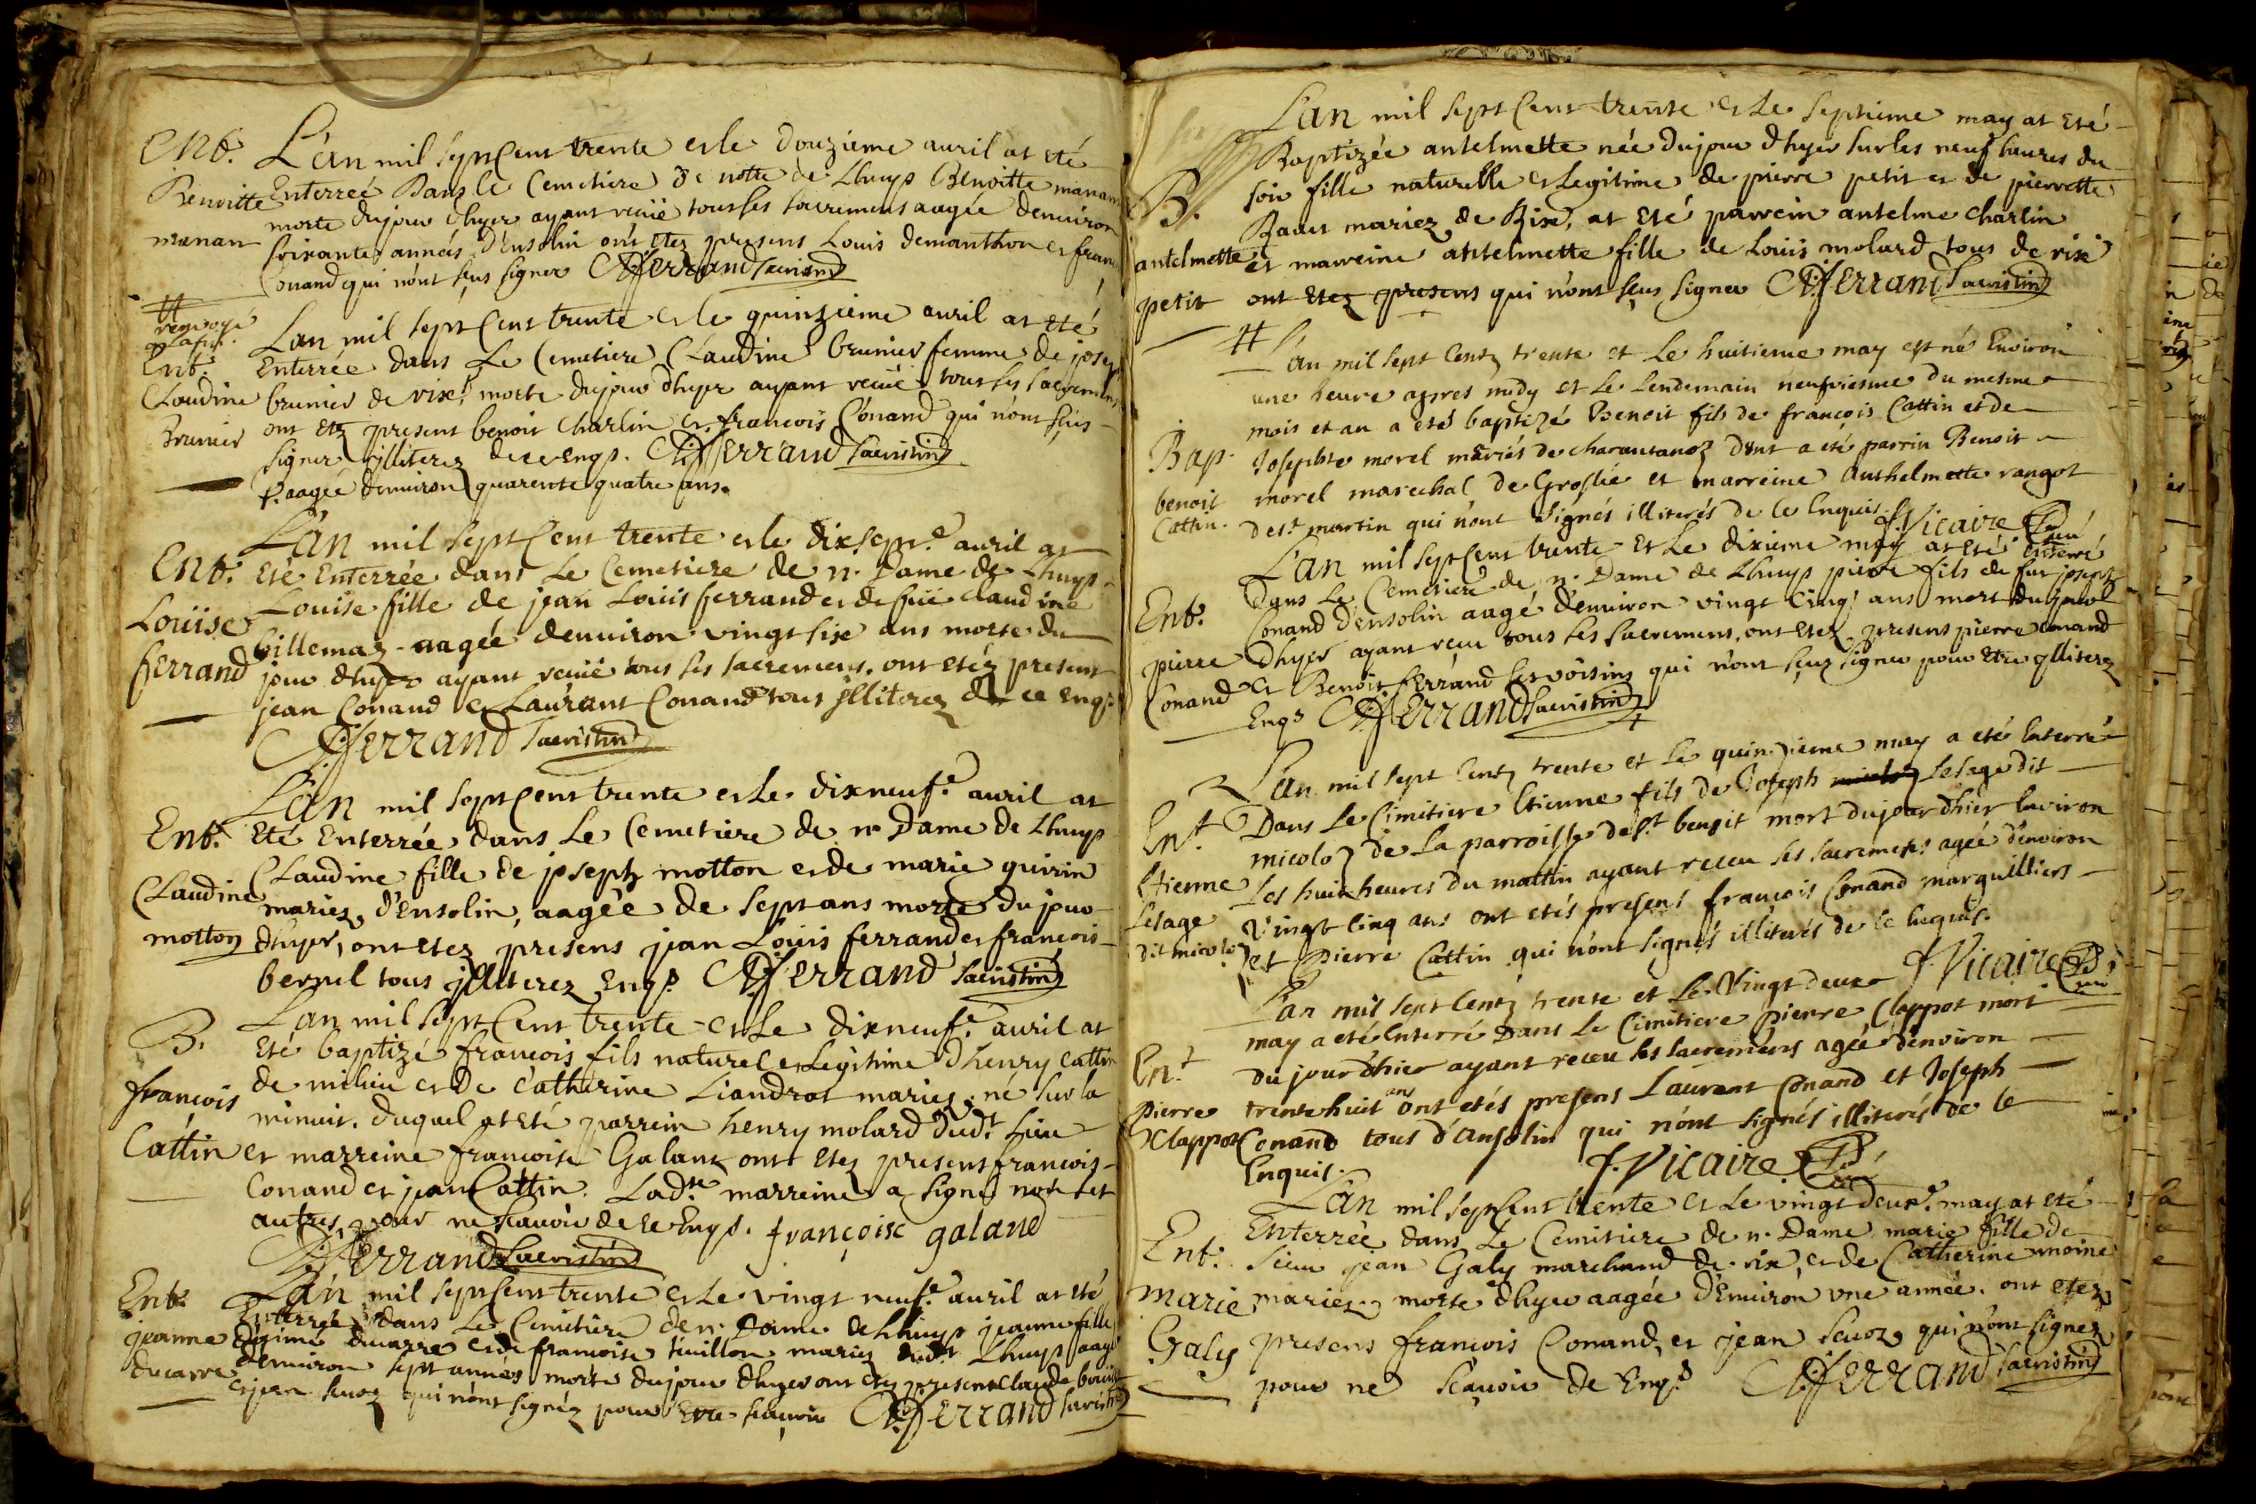 Ent.
Benoitte
manan
L'an mil sept Cent trente et le douzieme auril at eté
Enterreé Dans le Cemetiere de notte de Lhuys Benoitte manan
morte dujour dhyer ayant recüe tous ses sacremens aagée denuiron
soixante années d'Ensolin ont etez presens Louis demanthon et fran
Conand qui n'ont sçus signer Ferrand Sacristin
Ent.
Claudine
brunier
Lan mil sept Cent trente et le quinzieme auril at eté
Enterrée dans Le Cemetiere Claudine brunier femme de josep
brunier de rix, morte dujour dhyer ayant recüe tous ses sacremens
ont etz present benoit Charlin et francois Conand qui n'ont sçus
signer illiterez de ce enqs. Ferrand Sacristin
aagée denuiron quarente quatre ans.
Ent.
Loüise
ferrand
L'an mil sept Cent trente et le dix sept.e auril at
eté Enterrée dans Le Cemetiere de n. Dame de Lhuys
Louise fille de jean Louis ferrand et de füe claudine
billemaz aagée denuiron vingt six ans morte du
jour dhyer ayant recüe tous ses sacremens. ont etéz present
jean Conand et Laurant Conand tous jlliterez de ce enqs.
Ferrand Sacristin
Ent.
Claudine
motton
L'an mil sept Cent trente et Le dix neuf.e auril at
Eté Enterrée dans Le Cemetiere de n. Dame de Lhuys
Claudine fille de joseph motton et de marie guirin
mariez d'Ensolin, aagée de sept ans morte du jour
dhyer, ont etez presens jean Loüis ferrand et françois
bernel tous jlliterez enqs. Ferrand Sacristin
B.
françois
Cattin
Lan mil sept Cent trente et Le dix neuf.e auril at
Eté baptizé francois fils naturel et Legitime dhenry Cattin
de milieu et De Catherine Liandrat mariez. né sur la
minuit. duquel at eté parrein henry molard dud.t Lieu
et marreine francoise Galant ont etez presens francois
Conand et jean Cattin. Lad.te marreine a signé non les
autres pour ne scauoir de ce Enqs. françoise galand
Ferrand Sacristin
Ent.
jeanne
ducarre
L'an mil sept Cent trente et Le vingt neuf.e auril at eté
Enterrée dans Le Cemetiere de n. Dame de Lhuys jeanne fille
ducarre et de francoise mariez dud.t Lhuys aagé
denuiron sept années morte dujour dhyer ont etez presens claude
et jean seuoz qui n'ont signéz pour scauoir Ferrand Sacristin
B.
antelmette
petit
L'an mil sept Cent trente et Le septieme may at eté
Baptizée antelmette née dujour dhyer sur les neuf heures du
soir fille naturelle et Legitime de pierre petit et de pierrette
mariez de Rix, at eté parrein antelme charlin
et marreine antelmette fille de Louis molard tous de rix
ont etez presens qui n'ont sçus signer Ferrand Sacristin
Bap.
benoit
Cattin.
L'an mil sept Centz trente et Le huitieme may est né Environ
une heure apres midy et Le Lendemain neufviesme du mesme
mois et an a eté baptizé Benoit fils de françois Cattin et de
Josephte morel mariés de charantanoz dont a eté parrin Benoit
morel marechal de Groslié et marreine Anthelmette rangot
de st martin qui n'ont signés illiterés de ce Enquis. J. Vicaire
Ent.
pierre
Conand
L'an mil sept Cent trente et Le dixieme may at eté Enterré
Dans Le Cemetiere de n. Dame de Lhuys pierre fils de fut joseph
Conand d'ensolin aagé d'enuiron vingt Cinq ans mort du jour
dhyer ayant reçu tous ses sacremens. ont etez presens pierre Conand
et Benoit ferrand ses voisins qui n'ont sçuz signer pour etre jlliterez
Enqs Ferrand Sacristin
En.t
Etienne
Lesage
dit micoloz
L'an mil sept Centz trente et Le quinzieme may a eté Enterré
Dans Le Cimitiere Etienne fils de Joseph Lesage dit
micoloz de La parroisse de s.t benoit mort du jour dhier Environ
Les huit heures du mattin ayant receu ses sacremens agée d'environ
Vingt cinq ans ont etés presens francois Conand marguilliers
et Pierre Cattin qui n'ont signés illiterés de ce Enquis.
J. Vicaire
En.t
Pierre
Clappot
L'an mil sept Centz trente et Le Vingt deux
may a eté Enterré Dans Le Cimitiere Pierre Clappot mort
du jour d'hier ayant receu ses sacremens agée d'environ
trente huit ans ont etés presens Laurent Conand et Joseph
Conand tous d'Ansolin qui n'ont signés illiterés de ce
Enquis.
J. Vicaire
Ent.
Marie
Galy
L'an mil sept Cent trente et Le vingt deux.e may at eté
Enterrée dans Le Cemitiere de n. Dame marie fille de
sieur jean Galy marchand de rix, et de Catherine moine
mariez morte dhyer aagée d'Enuiron une année. ont etez
presens francois Conand, et jean seuoz qui n'ont signez
pour ne sçauoir de Enqs Ferrand Sacristin